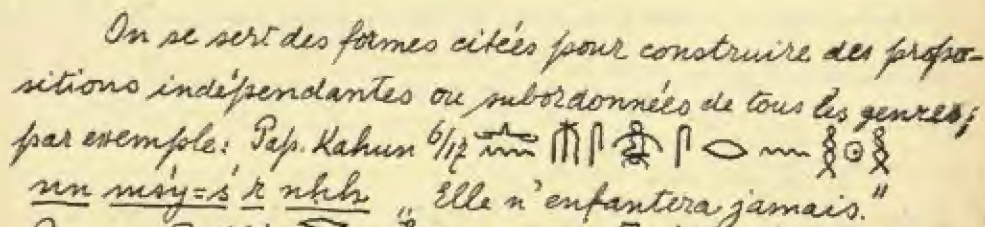 On se sert des formes citées pour construire des propo-
sitions indépendantes ou subordonnées de tous les genres;
par exemple: Pap. Kahun 6/17 𓂜𓈖 𓄟𓋴𓁒𓋴 𓂋 𓈖𓎛𓇳𓎛
nn mśy=ś r nḥḥ „Elle n'enfantera jamais."